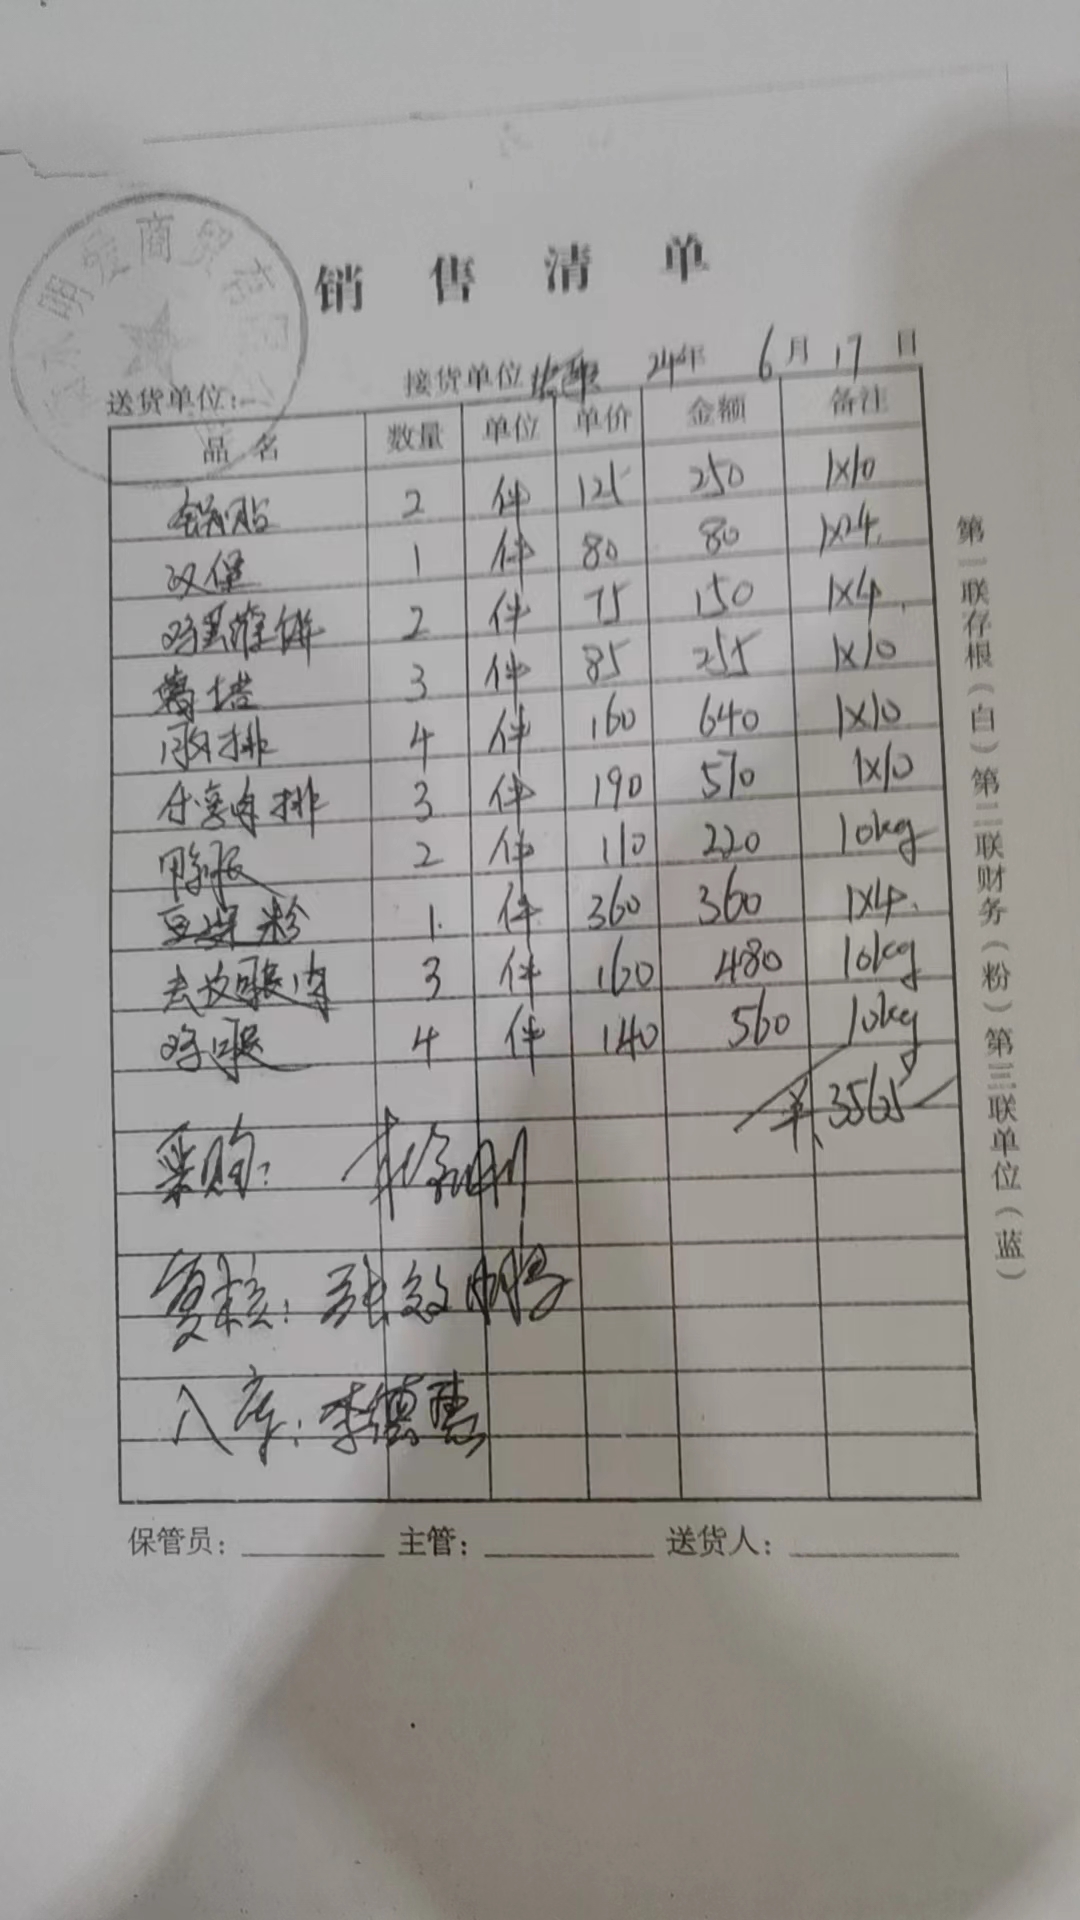 明爱商贸有限公
销售清单
送货单位: 接货单位 24年 6月17日
品名 数量 单位 单价 金额 备注
锅贴 2 件 125 250 1×10
汉堡 1 件 80 80 1×24
鸡蛋灌饼 2 件 75 150 1×4
蛋塔 3 件 85 255 1×10
排 4 件 160 640 1×10
排 3 件 190 570 1×10
鸭 2 件 110 220 10kg
粉 1 件 360 360 1×4
去皮腿肉 3 件 160 480 10kg
鸡腿 4 件 140 560 10kg
¥3565
采购:
复核: 张
入库: 李德惠
保管员: 主管: 送货人:
第一联存根(白)第二联财务(粉)第三联单位(蓝)